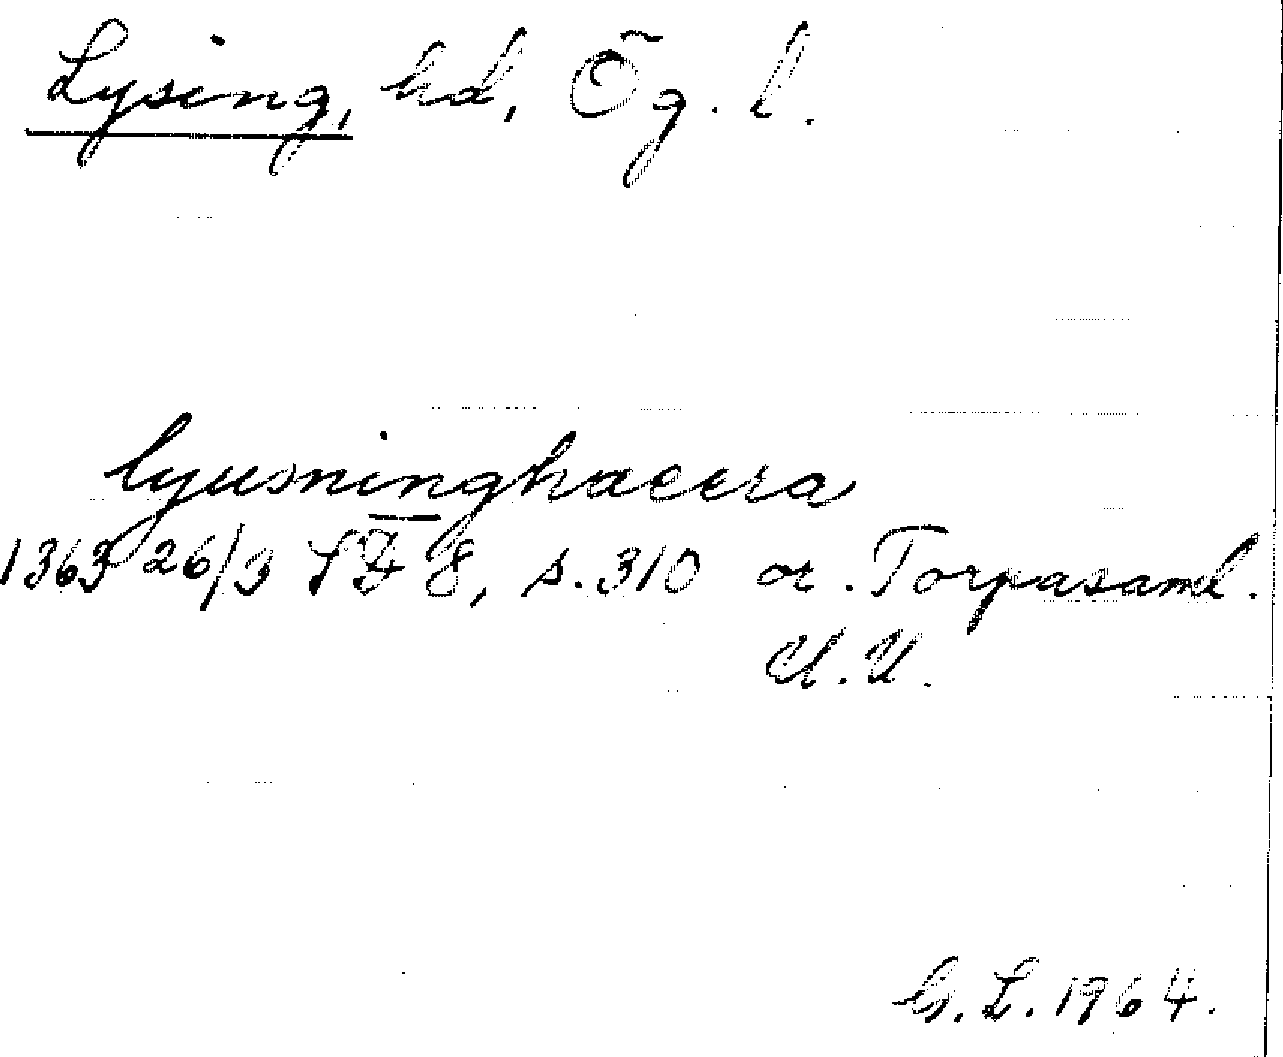 Lysing, hd, Ög. l.
lyusninghacera
1363 26/3 SD 8, s. 310 or. Torpasaml.
U.U.
G. L. 1964.